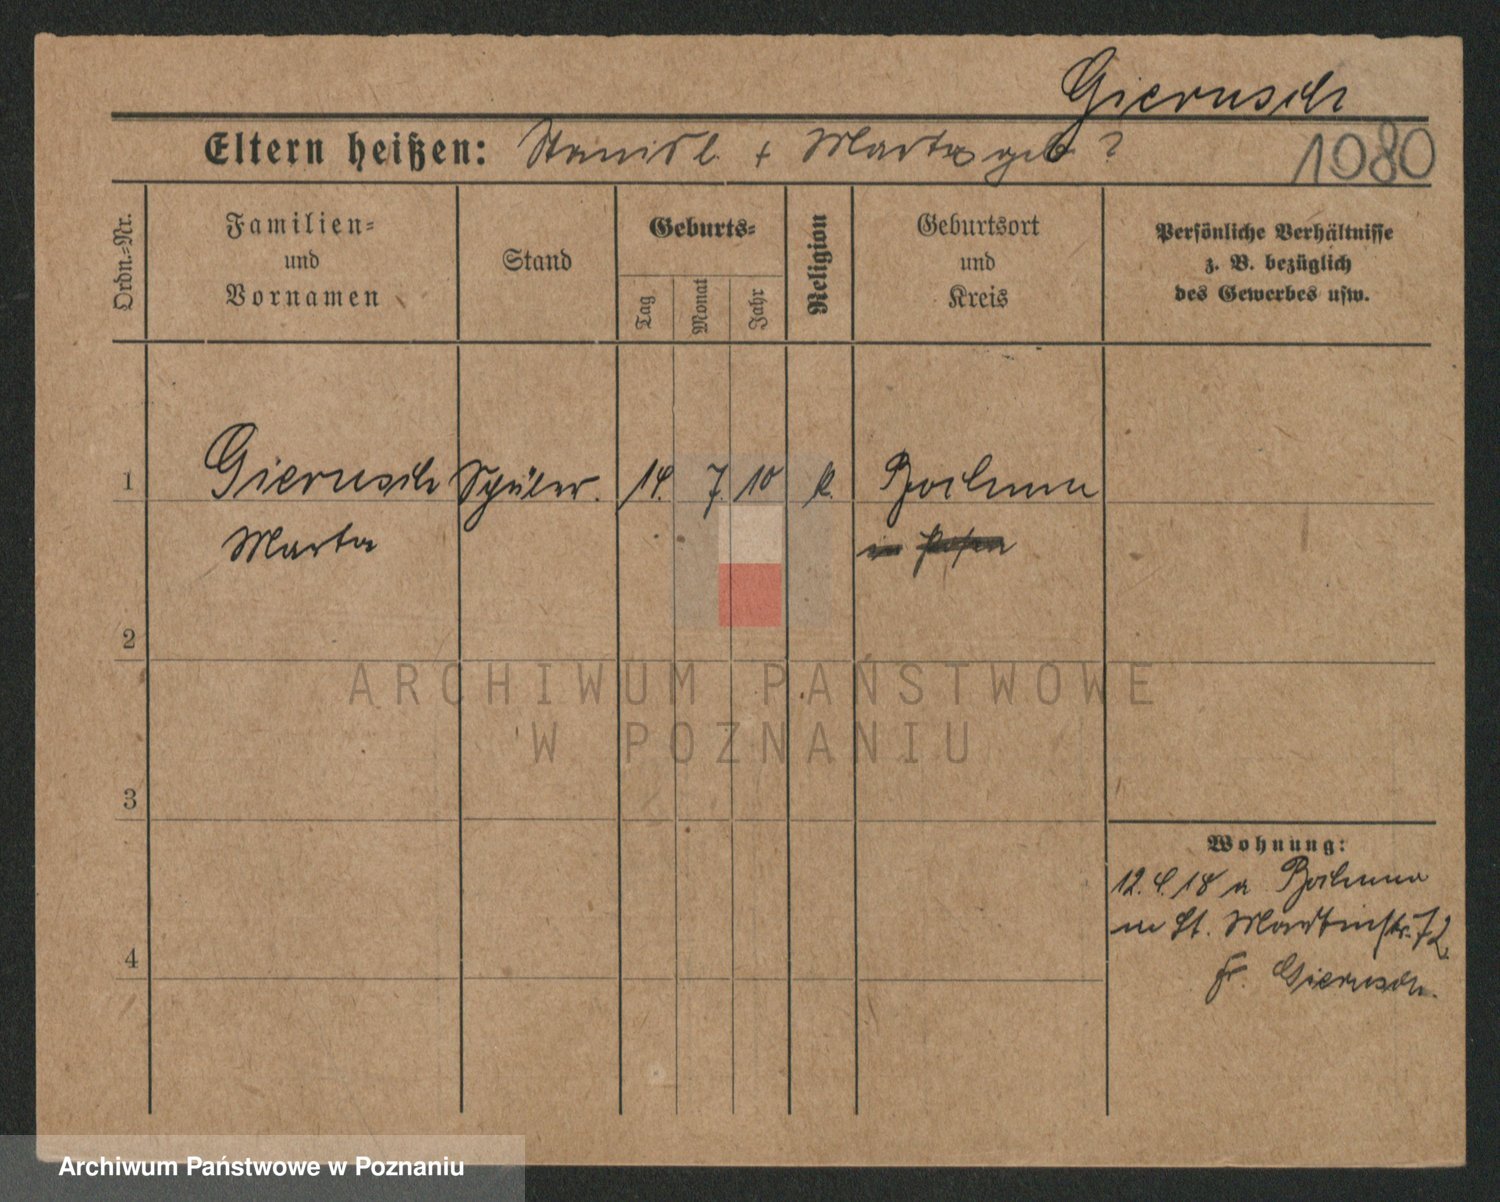 Gierusch
Eltern heißen: Stanisl. + Marta geb ?
1080
Ordn.-Nr.
Familien-
und
Vornamen
Stand
Geburts-
Tag
Monat
Jahr
Religion
Geburtsort
und
Kreis
Persönliche Verhältnisse
z. B. bezüglich
des Gewerbes usw.
1 Gierusch Schüler. 14. 7. 10 k. Bochum
Marta in Posen
2
3
4
Wohnung:
12. 4. 18 a Bochum
n St. Martinstr. 72
Fr. Gierusch.
ARCHIWUM PAŃSTWOWE
W POZNANIU
Archiwum Państwowe w Poznaniu